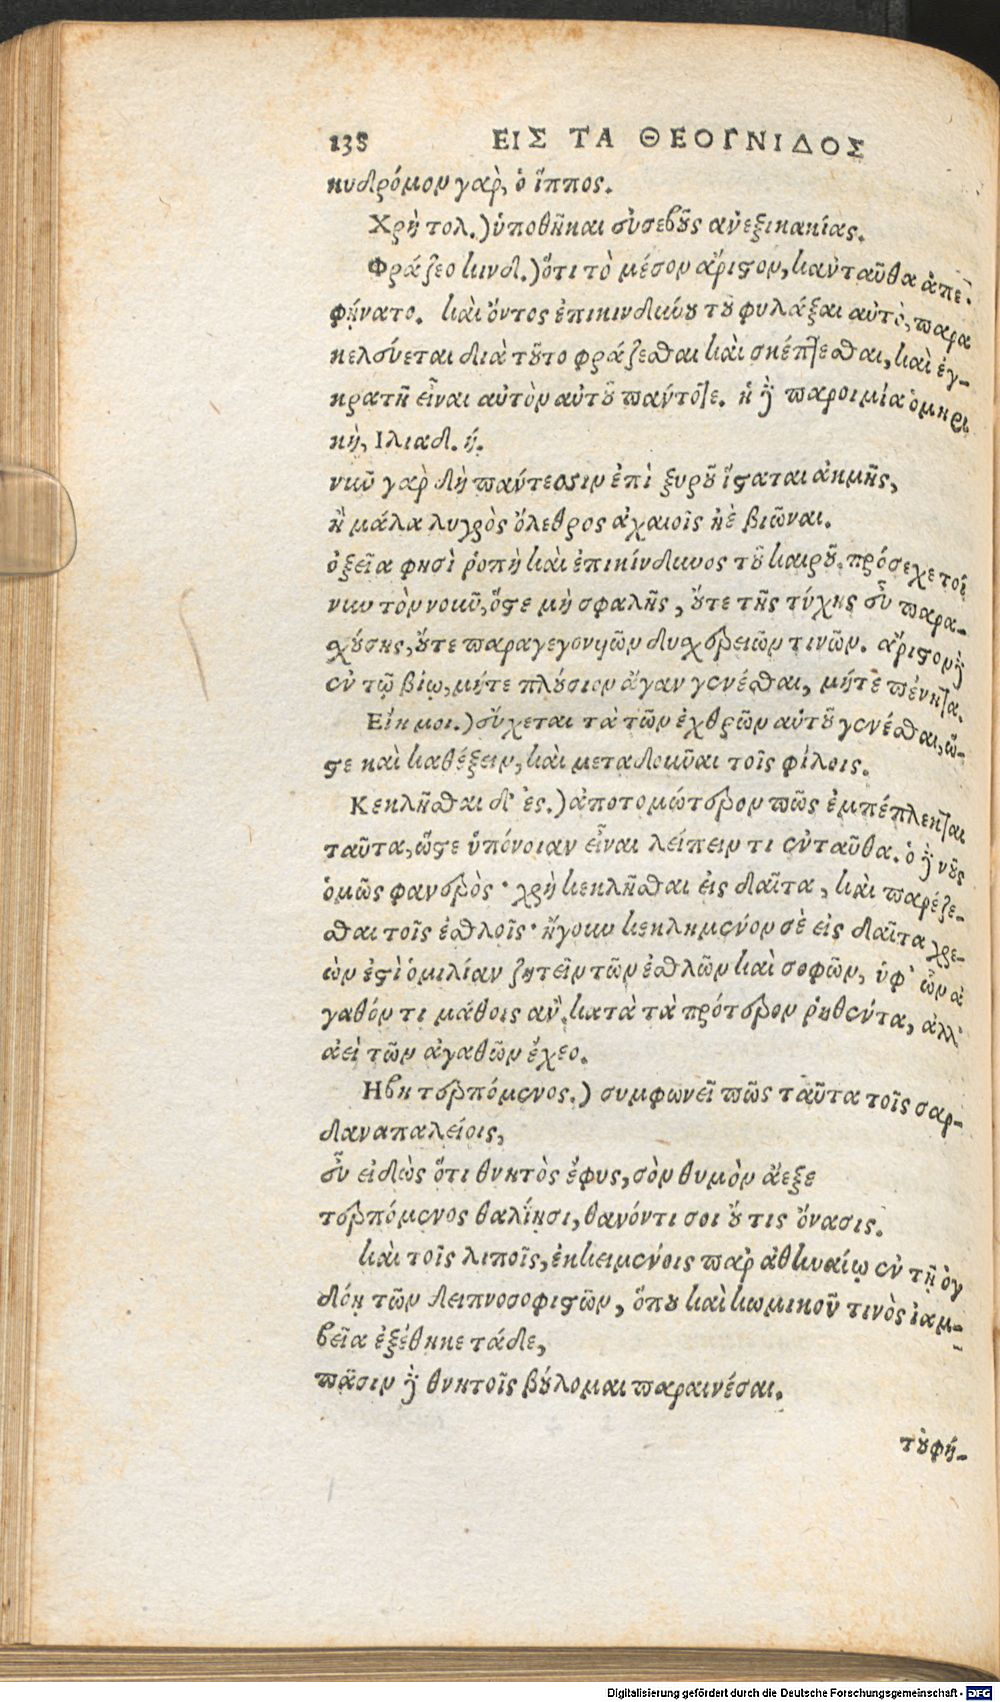 138 ΕΙΣ ΤΑ ΘΕΟΓΝΙΔΟΣ
κυδρόμου γαρ, ὁ ἵππος.
Χρὴ τολ.) ὑποθῆκαι εὐσεβοῦς ἀνεξικακίας.
Φράζεο κινδ.) ὅτι τὸ μέσον ἄριστον, κἀνταῦθα ἀπε-
φήνατο. καὶ ὄντος ἐπικινδύνου τοῦ φυλάξαι αὐτὸ, παρα
κελεύεται διὰ τοῦτο φράζεσθαι καὶ σκέπτεσθαι, καὶ ἐγ-
κρατῆ εἶναι αὐτὸν αὐτοῦ πάντοτε. ἡ δὲ παροιμία ὁμηρι
κὴ, Ιλιαδ. ή.
νῦν γαρ δὴ πάντεσσιν ἐπὶ ξυροῦ ἵσταται ἀκμῆς,
ἢ μάλα λυγρὸς ὄλεθρος ἀχαιοῖς ἠὲ βιῶναι.
ὀξεῖα φησὶ ῥοπὴ καὶ ἐπικίνδυνος τοῦ καιροῦ. πρόσεχε τοί
νυν τὸν νοῦν, ὥστε μὴ σφαλῆς, οὔτε τῆς τύχης εὖ παρα-
χούσης, οὔτε παραγεγονυιῶν δυσχερειῶν τινῶν. ἄριστον δὲ
ἐν τῷ βίῳ, μήτε πλούσιον ἄγαν γενέσθαι, μήτε πένητα.
Εἴη μοι.) εὔχεται τὰ τῶν ἐχθρῶν αὐτοῦ γενέσθαι, ὥ-
στε καὶ καθέξειν, καὶ μεταδοῦναι τοῖς φίλοις.
Κεκλῆσθαι δ' ἐς.) ἀποτομώτερον πῶς ἐμπέπλεκται
ταῦτα, ὥστε ὑπόνοιαν εἶναι λείπειν τι ἐνταῦθα. ὁ δὲ νοῦς
ὁμῶς φανερὸς· χρὴ κεκλῆσθαι εἰς δαῖτα, καὶ παρέζε-
σθαι τοῖς ἐσθλοῖς· ἤγουν κεκλημένον σὲ εἰς δαῖτα χρε-
ὼν ἐστὶ ὁμιλίαν ζητεῖν τῶν ἐσθλῶν καὶ σοφῶν, ὑφ' ὧν ἀ
γαθόν τι μάθοις ἂν. κατὰ τὰ πρότερον ῥηθέντα, ἀλλ'
ἀεὶ τῶν ἀγαθῶν ἔχεο.
Ηβῃ τερπόμενος.) συμφωνεῖ πῶς ταῦτα τοῖς σαρ-
δαναπαλείοις,
εὖ εἰδὼς ὅτι θνητὸς ἔφυς, σὸν θυμὸν ἄεξε
τερπόμενος θαλίῃσι, θανόντι σοι οὔ τις ὄνασις.
καὶ τοῖς λιποῖς, ἐκκειμένοις παρ' ἀθηναίῳ ἐν τῇ ὀγ
δόῃ τῶν δειπνοσοφιστῶν, ὅπου καὶ κωμικοῦ τινὸς ἰαμ-
βεῖα ἐξέθηκε τάδε,
πᾶσιν δὲ θνητοῖς βούλομαι παραινέσαι.
τοὐφή-
Digitalisierung gefördert durch die Deutsche Forschungsgemeinschaft - DFG